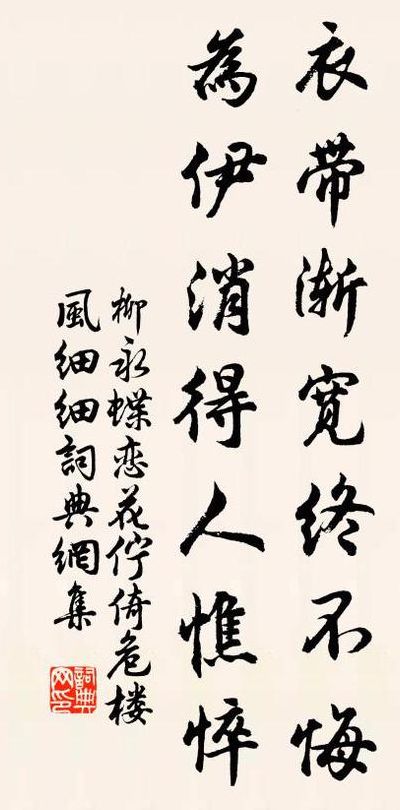 衣帶漸寬終不悔
為伊消得人憔悴
柳永蝶恋花佇倚危楼
風细细詞典網集
詞典
网印